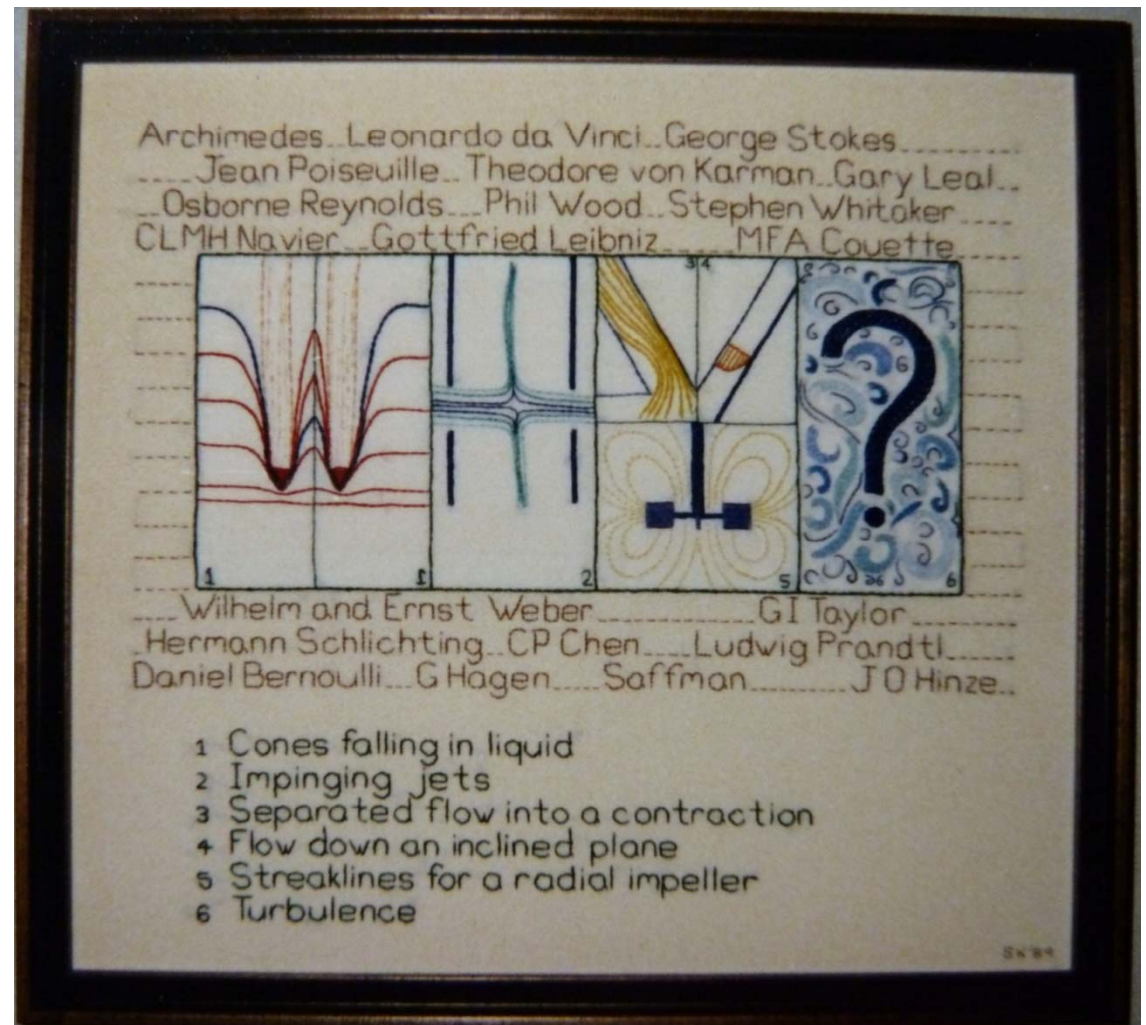 Archimedes Leonardo da Vinci George Stokes
Jean Poiseuille Theodore von Karman Gary Leal
Osborne Reynolds Phil Wood Stephen Whitaker
CLMH Navier Gottfried Leibniz MFA Couette
3 4
1 1 2 5 6
Wilhelm and Ernst Weber GI Taylor
Hermann Schlichting CP Chen Ludwig Prandtl
Daniel Bernoulli G Hagen Saffman J O Hinze
1 Cones falling in liquid
2 Impinging jets
3 Separated flow into a contraction
4 Flow down an inclined plane
5 Streaklines for a radial impeller
6 Turbulence